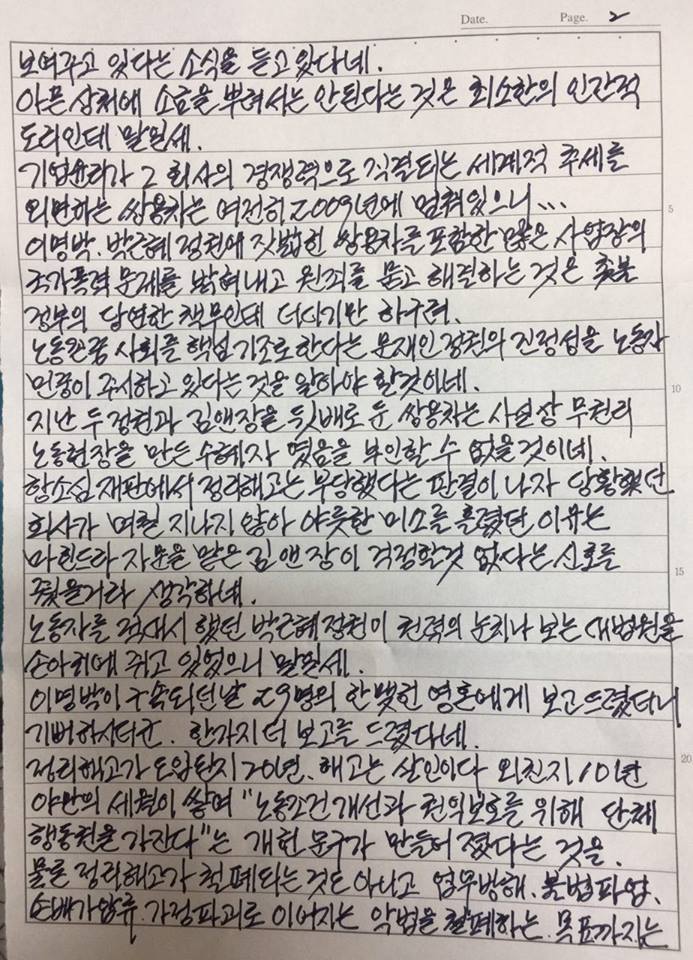 Date. Page. 2
보여주고 있다는 소식을 듣고 있다네.
아픈 상처에 소금을 뿌려서는 안된다는 것은 최소한의 인간적
도리인데 말일세.
기업윤리가 그 회사의 경쟁력으로 직결되는 세계적 추세를
외면하는 쌍용차는 여전히 2009년에 멈춰있으니...
5
이명박.박근혜 정권에 짓밟힌 쌍용차를 포함한 많은 사업장의
국가폭력 문제를 밝혀내고 원죄를 묻고 해결하는 것은 촛불
정부의 당연한 책무인데 더디기만 하구려.
노동존중 사회를 핵심기조로 한다는 문재인정권의 진정성을 노동자
민중이 주시하고 있다는 것을 알아야 할것이네.
10
지난 두 정권과 김앤장을 뒷배로 둔 쌍용차는 사실상 무권리
노동현장을 만든 수혜자 였음을 부인할 수 없을 것이네.
항소심 재판에서 정리해고는 부당했다는 판결이 나자 당황했던
회사가 며칠 지나지 않아 야릇한 미소를 흘렸던 이유는
마힌드라 자문을 맡은 김앤장이 걱정할것 없다는 신호를
15
줬을거라 생각하네.
노동자를 적대시 했던 박근혜정권이 권력의 눈치나 보는 대법원을
손아귀에 쥐고 있었으니 말일세.
이명박이 구속되던날 29명의 한맺힌 영혼에게 보고 드렸더니
기뻐하시더군. 한가지 더 보고를 드렸다네.
20
정리해고가 도입된지 20년, 해고는 살인이다 외친지 10년
야만의 세월이 쌓여 "노동조건 개선과 권익보호를 위해 단체
행동권을 가진다"는 개헌 문구가 만들어 졌다는 것을.
물론 정리해고가 철폐되는 것도 아니고 업무방해, 불법파업,
손배가압류.가정파괴로 이어지는 악법을 철폐하는 목표까지는